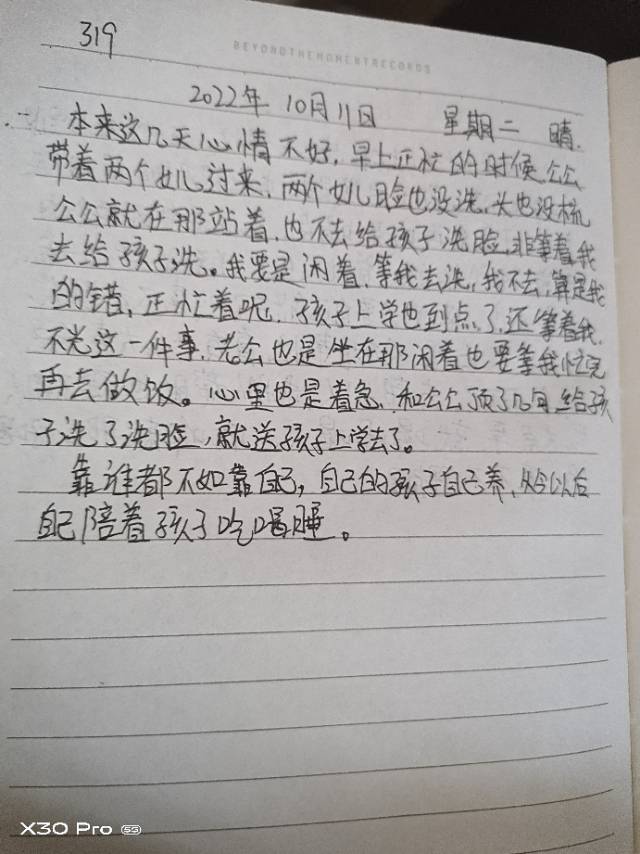 319
BEYONDTHEMOMENTRECORDS
2022年 10月11日 星期二 晴.
本来这几天心情不好,早上正忙的时候,公公
带着两个女儿过来,两个女儿脸也没洗,头也没梳
公公就在那站着,也不去给孩子洗脸,非等着我
去给孩子洗。我要是闲着,等我去洗,我不去,算是我
的错,正忙着呢,孩子上学也到点了,还等着我,
不光这一件事,老公也是坐在那闲着也要等我忙完
再去做饭。心里也是着急,和公公顶了几句,给孩
子洗了洗脸,就送孩子上学去了。
靠谁都不如靠自己,自己的孩子自己养,从今以后
自己陪着孩子吃喝睡。
X30 Pro 5G